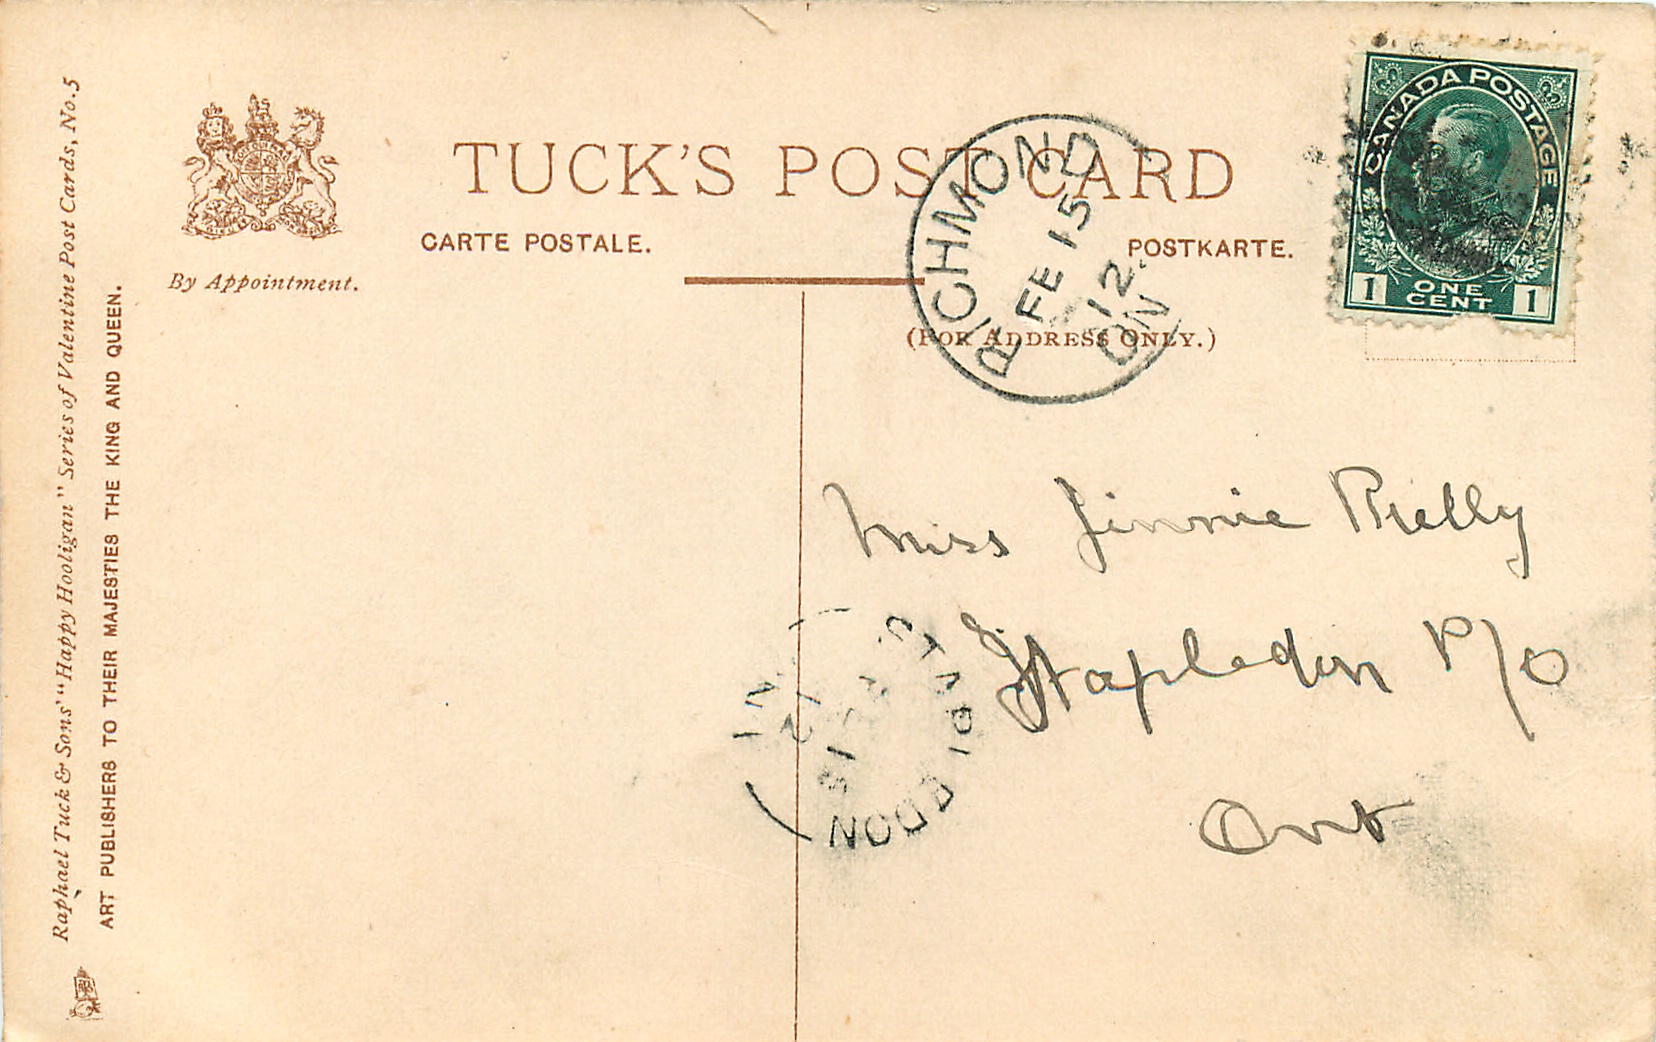 Raphael Tuck & Sons' "Happy Hooligan" Series of Valentine Post Cards, No. 5
ART PUBLISHERS TO THEIR MAJESTIES THE KING AND QUEEN.
By Appointment.
TUCK'S POST CARD
CARTE POSTALE.
POSTKARTE.
(FOR ADDRESS ONLY.)
RICHMOND
FE 15
12
ON
CANADA POSTAGE
1 ONE CENT 1
Miss Jinnie Rielly
Stapledon P/O
Ont
12